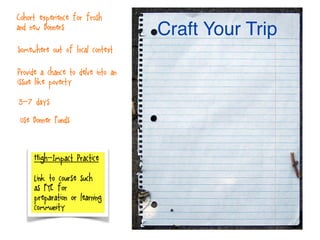 Cohort experience for frosh
and new Bonners
Somewhere out of local context
Provide a chance to delve into an
issue like poverty
3-7 days
Use Bonner funds
High-Impact Practice
Link to course such
as FYE for
preparation or learning
community
Craft Your Trip